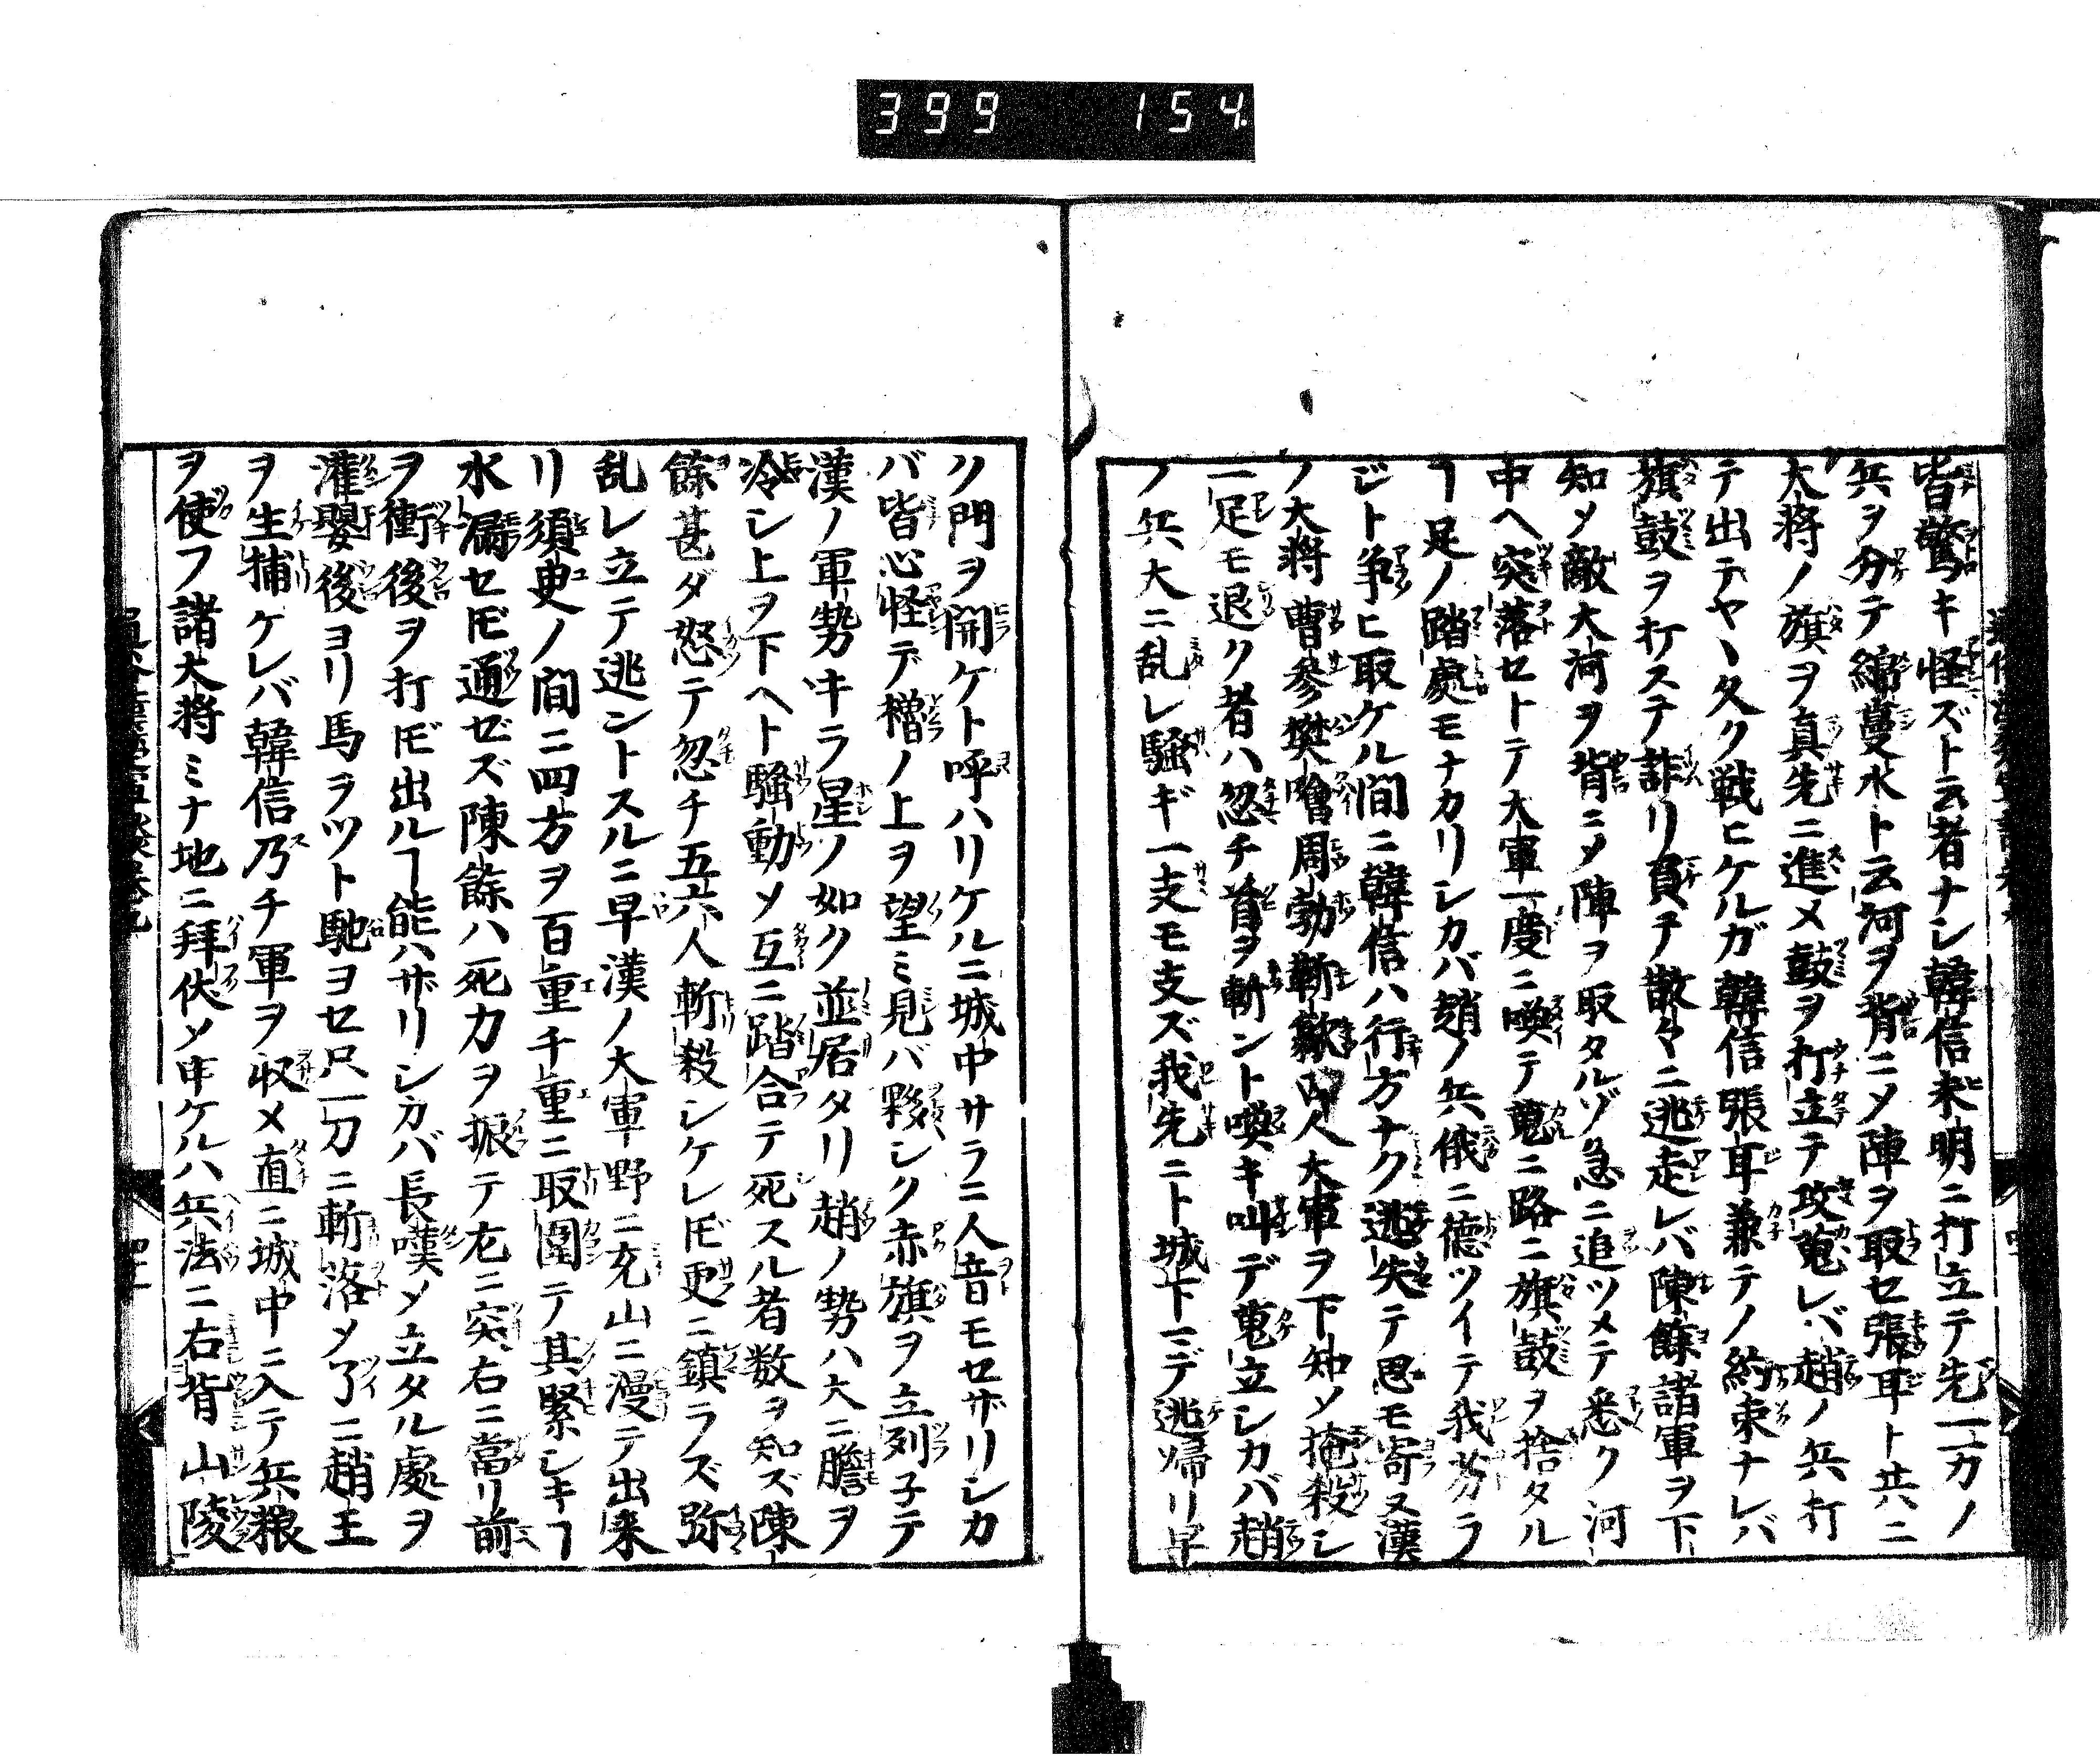 399 154
皆驚キ怪ズト云者ナシ韓信未明ニ打立テ先一万ノ
兵ヲ分テ綿蔓水ト云河ヲ背ニメ陣ヲ取セ張耳ト共ニ
大将ノ旗ヲ真先ニ進メ鼓ヲ打立テ攻蒐レバ趙ノ兵打
テ出テヤヽ久ク戦ヒケルガ韓信張耳兼テノ約束ナレバ
旗鼓ヲ打ステ詐リ負テ散々ニ逃走レバ陳餘諸軍ヲ下
知メ敵大河ヲ背ニメ陣ヲ取タルゾ急ニ追ツメテ悉ク河
中ヘ突落セトテ大軍一度ニ喚テ蒐ニ路ニ旗鼓ヲ捨タル
ヿ足ノ踏處モナカリシカバ趙ノ兵俄ニ德ツイテ我劣ラ
ジト争ヒ取ケル間ニ韓信ハ行方ナク逃失テ思モ寄ヌ漢
ノ大将曹参樊噲周勃靳歙四人大軍ヲ下知メ掩殺シ
一足モ退ク者ハ忽チ首ヲ斬ント喚キ叫デ蒐立シカバ趙
ノ兵大ニ乱レ騒ギ一支モ支ズ我先ニト城下ニデ逃帰リ早
ク門ヲ開ケト呼ハリケルニ城中サラニ人音モセザリシカ
バ皆心怪デ櫓ノ上ヲ望ミ見バ夥シク赤旗ヲ立列子テ
漢ノ軍勢キラ星ノ如ク並居タリ趙ノ勢ハ大ニ膽ヲ
冷シ上ヲ下ヘト騒動メ互ニ踏合テ死スル者数ヲ知ズ陳
餘甚ダ怒テ忽チ五六人斬殺シケレ𪜈更ニ鎮ラズ弥
乱レ立テ逃ントスルニ早漢ノ大軍野ニ充山ニ漫テ出来
リ須臾ノ間ニ四方ヲ百重千重ニ取圍テ其緊シキヿ
水漏セ𪜈通ゼズ陳餘ハ死力ヲ振テ左ニ突右ニ當リ前
ヲ衝後ヲ打𪜈出ルヿ能ハザリシカバ長嘆メ立タル處ヲ
灌嬰後ヨリ馬ヲツト馳ヨセ只一刀ニ斬落メ了ニ趙王
ヲ生捕ケレバ韓信乃チ軍ヲ収メ直ニ城中ニ入テ兵粮
ヲ使フ諸大将ミナ地ニ拜伏メ申ケルハ兵法ニ右背山陵